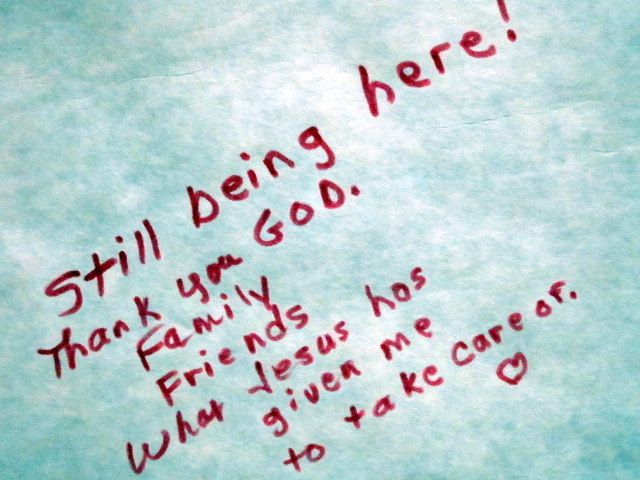 Still being here!
Thank you GOD.
Family
Friends
What Jesus has
given me
to take care of.